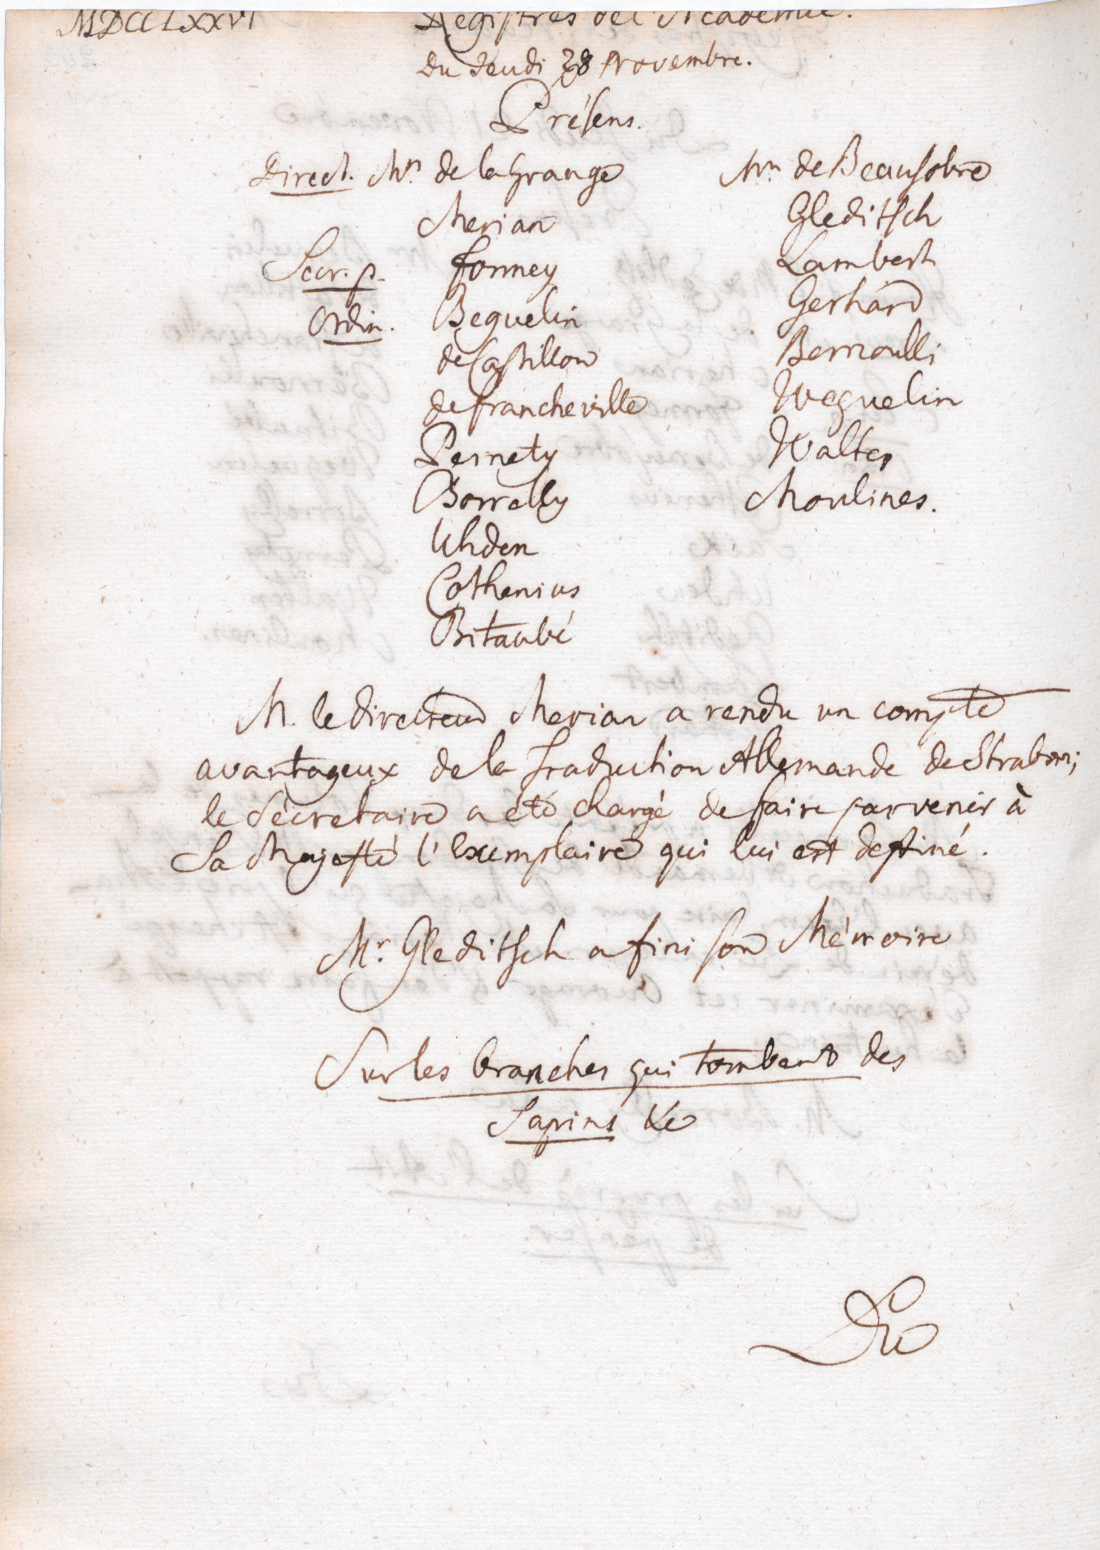 MDCCLXXVI
Registres de l'Académie.
Du Jeudi 28 Novembre.
Présens.
Direct. Mrs de la Grange
Merian
Secr. p. Formey
Ordin. Beguelin
de Castillon
de Francheville
Pernety
Borrelly
Uhden
Cothenius
Bitaubé
Mrs de Beausobre
Gleditsch
Lambert
Gerhard
Bernoulli
Weguelin
Walter
Moulines.
M. le Directeur Merian a rendu un compte
avantageux de la Traduction Allemande de Strabon;
le Sécretaire a été chargé de faire parvenir à
Sa Majesté l'Exemplaire qui lui est destiné.
Mr. Gleditsch a fini son Mémoire
Sur les branches qui tombent des
Sapins &c